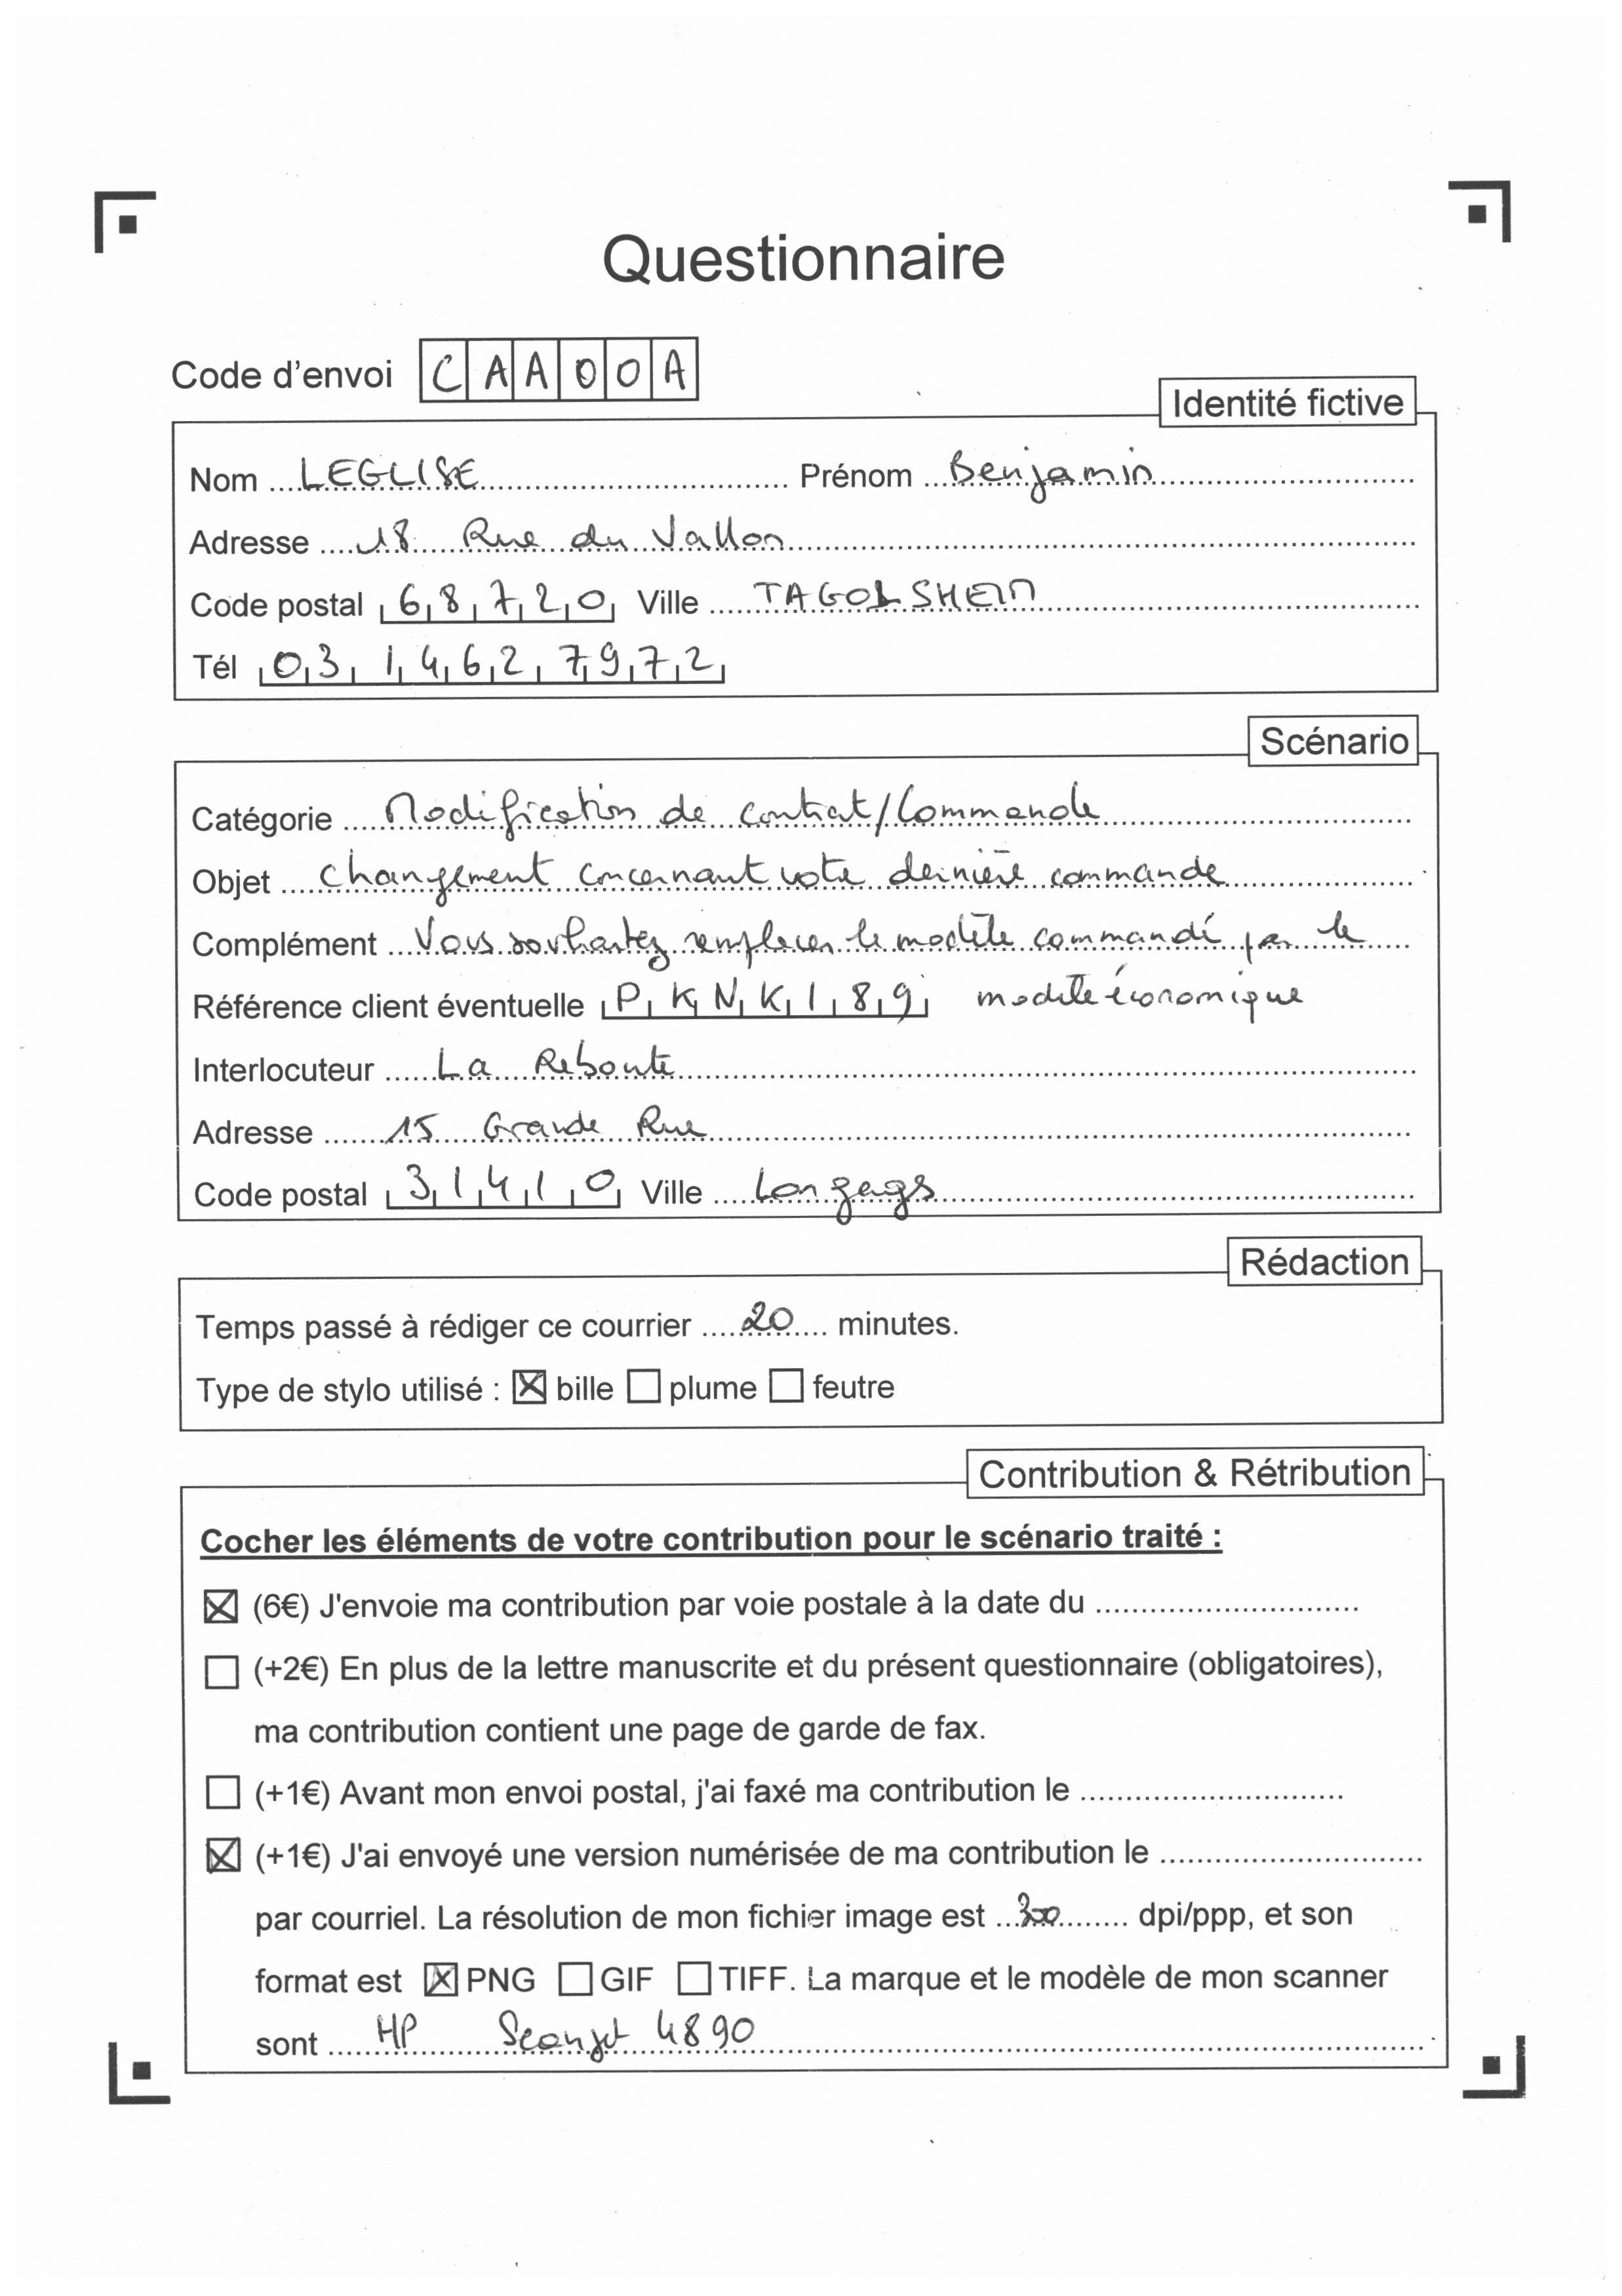 Questionnaire
Code d'envoi CAA00A
Identité fictive
Nom LEGLISE Prénom Benjamin
Adresse 18 Rue du Vallon
Code postal 68720 Ville TAGOLSHEIM
Tél 03 14 62 79 72
Scénario
Catégorie Modification de contrat/Commande
Objet changement concernant votre dernière commande
Complément Vous souhaitez remplacer le modèle commandé par le
Référence client éventuelle PKNK189 modèle économique
Interlocuteur La Reboute
Adresse 15 Grande Rue
Code postal 31410 Ville Longages
Rédaction
Temps passé à rédiger ce courrier 20 minutes.
Type de stylo utilisé : ☒ bille ☐ plume ☐ feutre
Contribution & Rétribution
Cocher les éléments de votre contribution pour le scénario traité :
☒ (6€) J'envoie ma contribution par voie postale à la date du
☐ (+2€) En plus de la lettre manuscrite et du présent questionnaire (obligatoires),
ma contribution contient une page de garde de fax.
☐ (+1€) Avant mon envoi postal, j'ai faxé ma contribution le
☒ (+1€) J'ai envoyé une version numérisée de ma contribution le
par courriel. La résolution de mon fichier image est 300 dpi/ppp, et son
format est ☒ PNG ☐ GIF ☐ TIFF. La marque et le modèle de mon scanner
sont HP Scanjet 4890